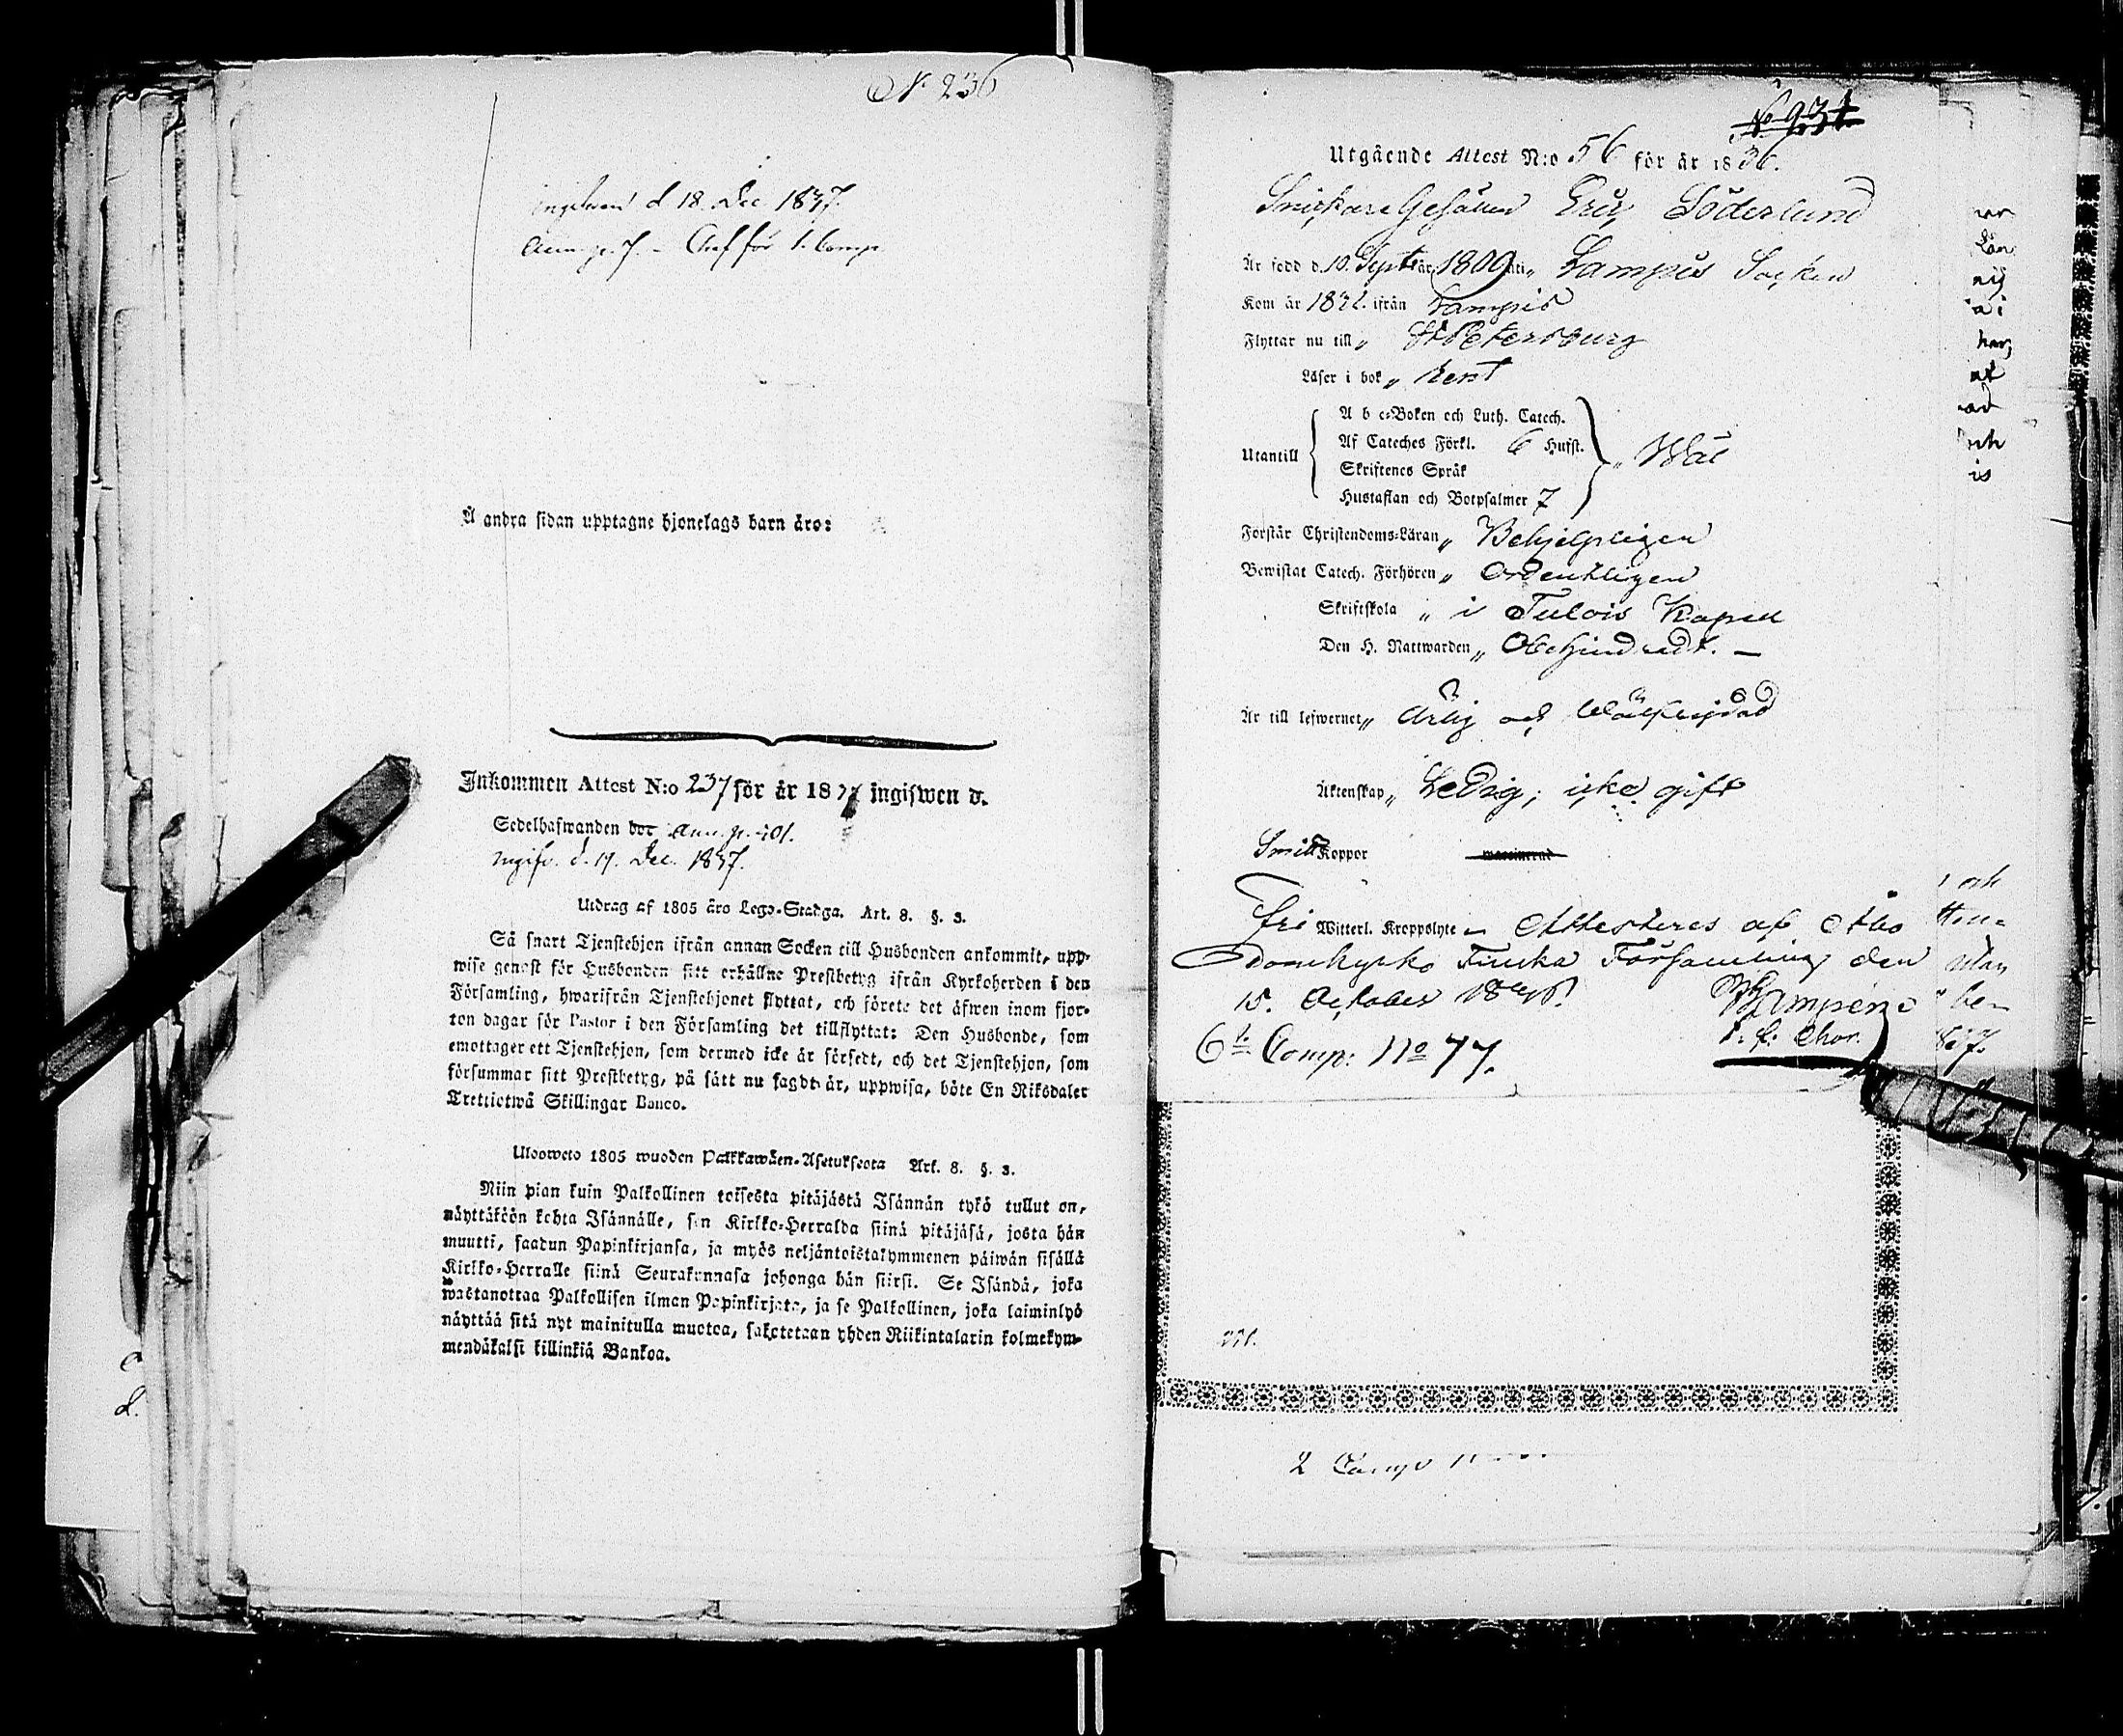 N 236
d 18. Dec 1837.
Å andra sidan upptagne hjonelags barn äro:
Inkommen Attest N:o 237 för år 1837 ingifwen d.
Sedelhafwanden bor
ingifv. d. 19. Dec. 1837.
Utdrag af 1805 års Lego-Stadga. Art. 8. §. 3.
Så snart Tjenstehjon ifrån annan Socken till Husbonden ankommit, upp-
wise genast för Husbonden sitt erhållne Prestbetyg ifrån Kyrkoherden i den
Församling, hwarifrån Tjenstehjonet flyttat, och förete det äfwen inom fjor-
ton dagar för Pastor i den Församling det tillflyttat: Den Husbonde, som
emottager ett Tjenstehjon, som dermed icke är försedt, och det Tjenstehjon, som
försummar sitt Prestbetyg, på sätt nu sagdt är, uppwisa, böte En Riksdaler
Trettiotwå Skillingar Banco.
Ulosweto 1805 wuoden Palkkawäen-Asetuksesta Art. 8. §. 3.
Niin pian kuin Palkollinen toisesta pitäjästä Isännän tykö tullut on,
näyttäköön kohta Isännälle, sen Kirkko-Herralda siinä pitäjäsä, josta hän
muutti, saadun Papinkirjansa, ja myös neljäntoistakymmenen päiwän sisällä
Kirkko-Herralle siinä Seurakunnasa johonga hän siirsi. Se Isändä, joka
wastanottaa Palkollisen ilman Papinkirjata, ja se Palkollinen, joka laiminlyö
näyttää sitä nyt mainitulla muotoa, sakotetaan yhden Riikintalarin kolmekym-
mendäkaksi killinkiä Bankoa.
Utgående Attest N:o 56 för år 1836.
Snickare Gesällen Eric Söderlund
Är född d. 10 Sept. år 1809 uti " Lampis Socken
Kom år 1832. ifrån Lampis
Flyttar nu till " St Petersburg
Läser i bok " Rent
A b c-Boken och Luth. Catech.
Af Cateches Förkl. 6 Hufst.
Utantill
Skriftenes Språk
Hustaflan och Botpsalmer 7
" Wäl
Förstår Christendoms-Läran " Behjelpligen
Bewistat Catech. Förhören " Ordentligen
Skriftskola " i Tulois Kapell
Den H. Nattwarden " Obehindradt. —
Är till lefwernet " Ärlig och Wälfrejdad
Äktenskap " Ledig, icke gift
Smitt Koppor waccinerad
fri Witterl. Kroppslyte - Attesteres af Åbo
Domkyrko Finska Församling den
15. October 1836.
6te Comp: No 77.
2 Comp